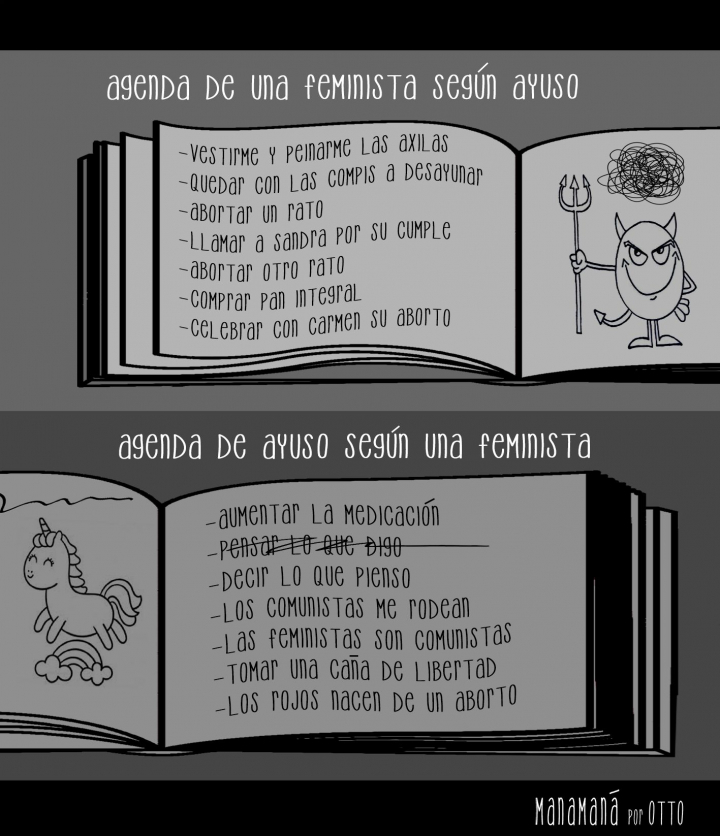 agenda de una feminista según ayuso
-vestirme y peinarme las axilas
-quedar con las compis a desayunar
-abortar un rato
-llamar a sandra por su cumple
-abortar otro rato
-comprar pan integral
-celebrar con carmen su aborto
agenda de ayuso según una feminista
-aumentar la medicación
-pensar lo que digo
-decir lo que pienso
-los comunistas me rodean
-las feministas son comunistas
-tomar una caña de libertad
-los rojos nacen de un aborto
manamaná por OTTO